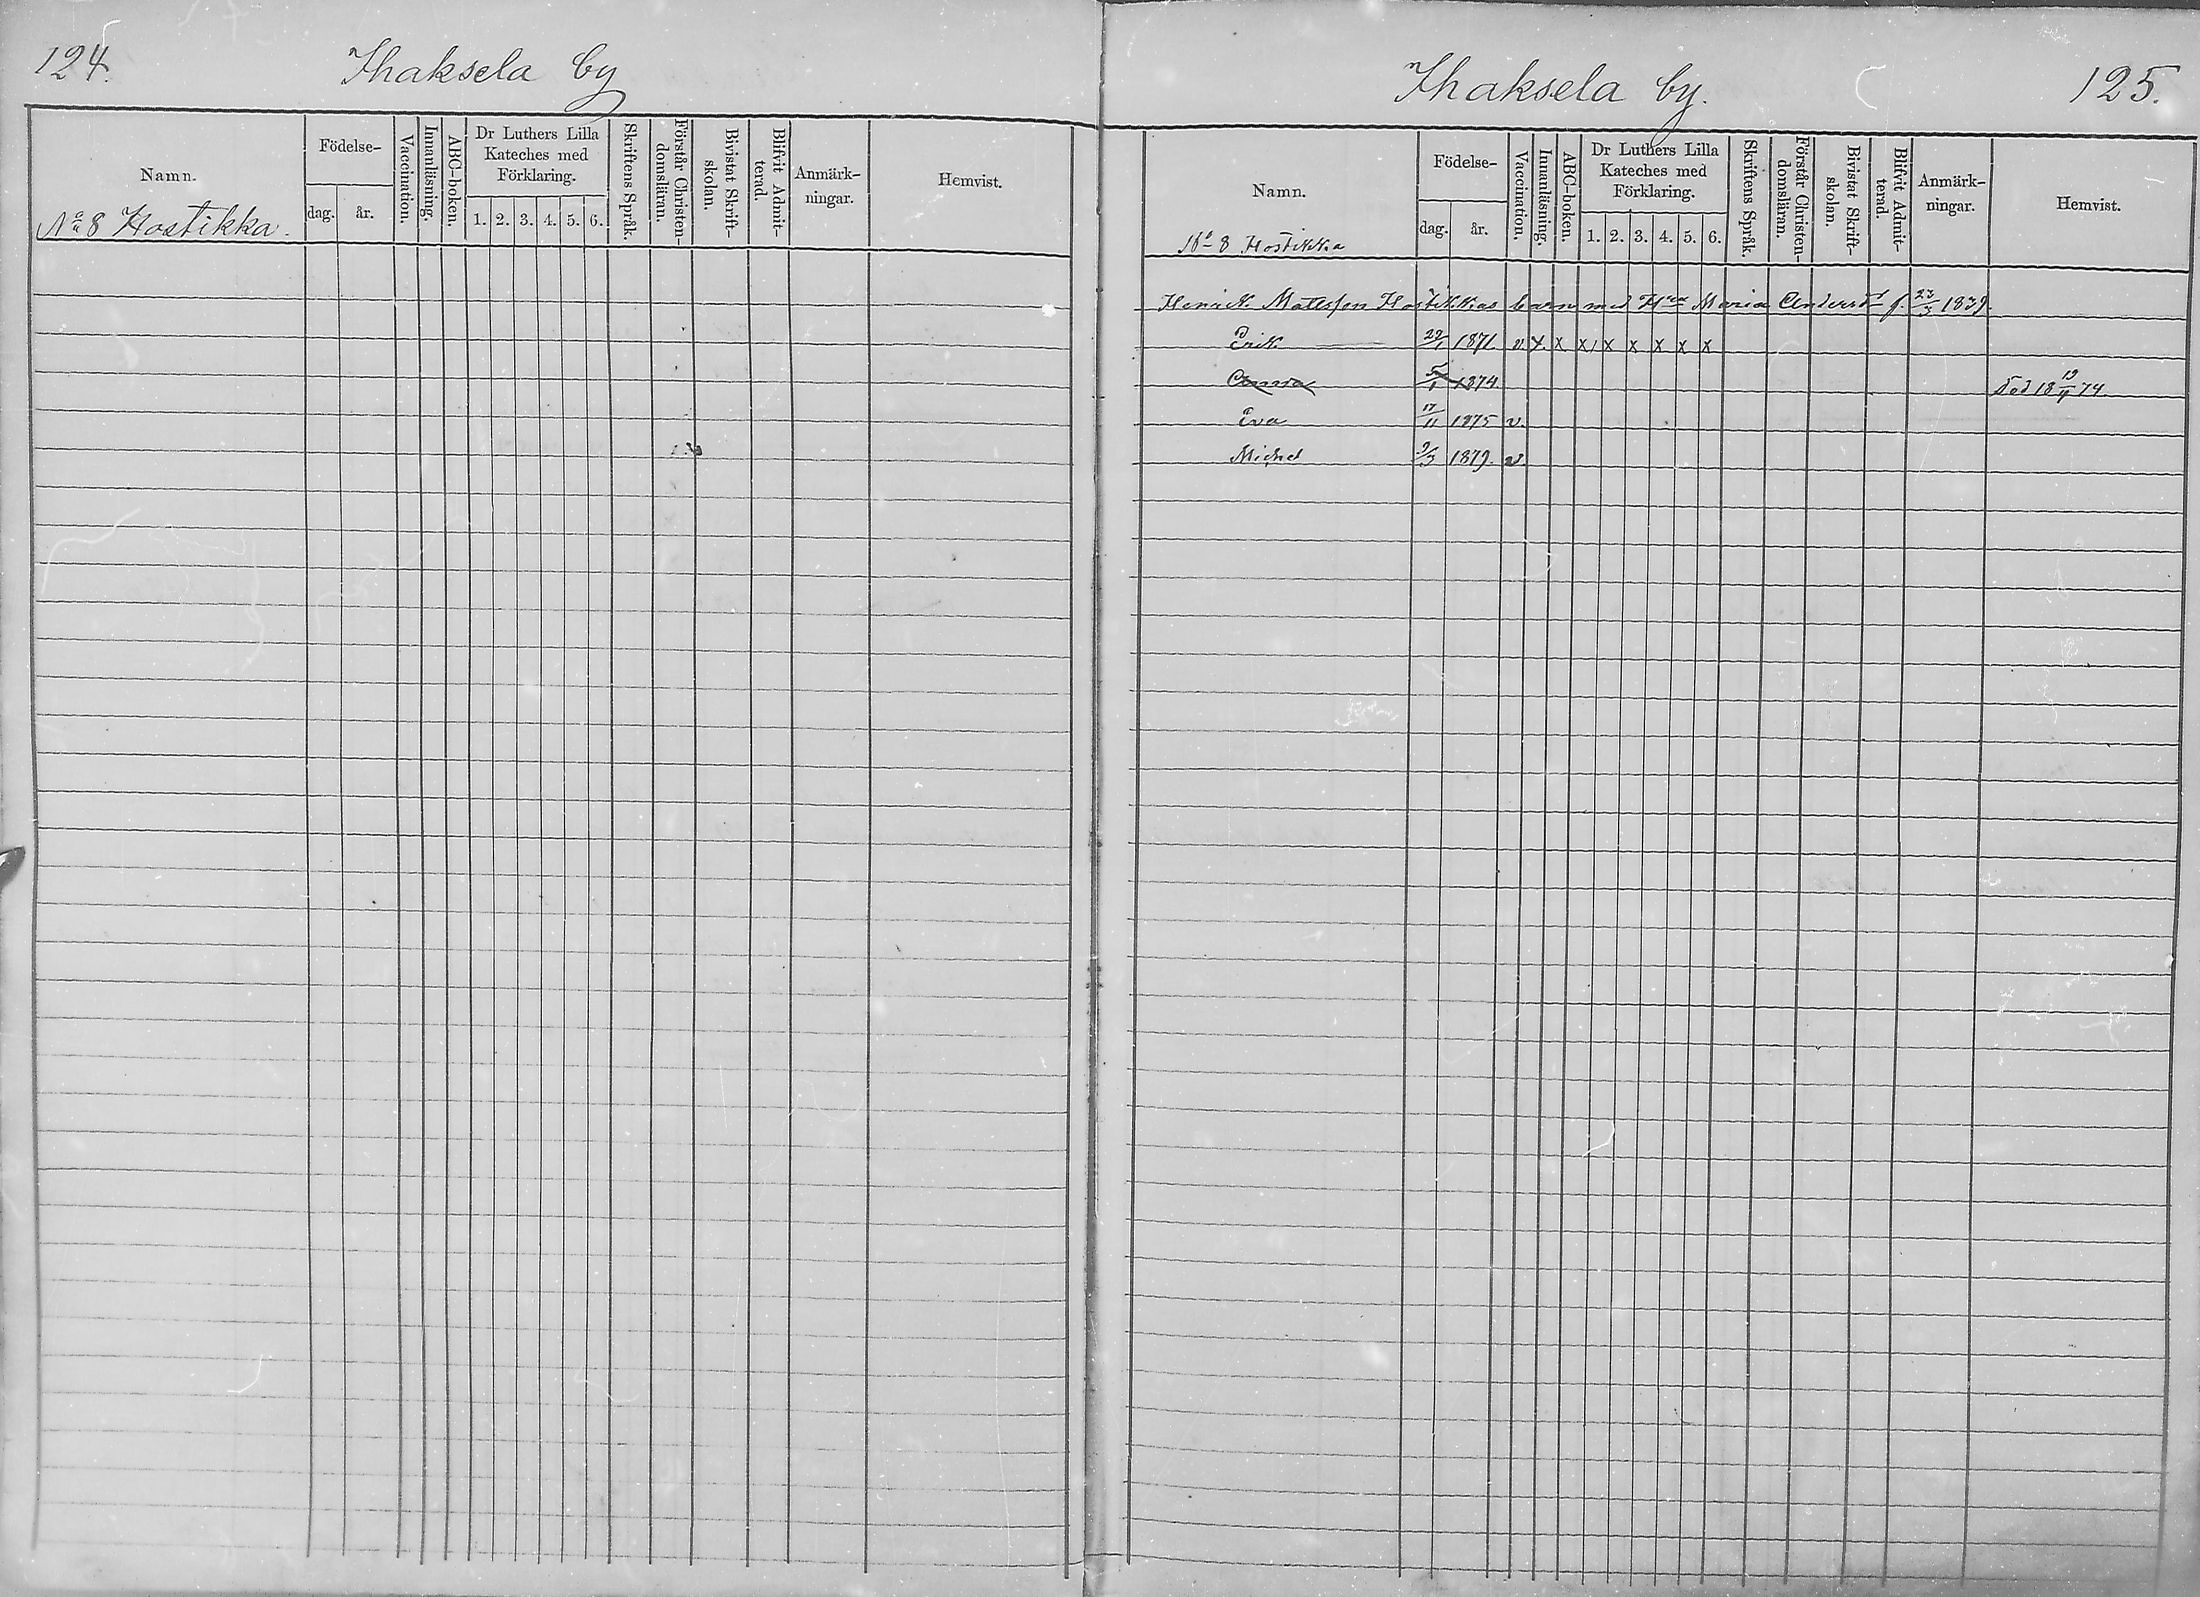 124.
Ihaksela by
Namn.
Födelse-
dag.
år.
Vaccination.
Innanläsning.
ABC-boken.
Dr Luthers Lilla
Kateches med
Förklaring.
1. 2. 3. 4. 5. 6.
Skriftens Språk.
Förstår Christen-
domsläran.
Bivistat Skrift-
skolan.
Blifvit Admit-
terad.
Anmärk-
ningar.
Hemvist.
No 8 Hostikka.
Ihaksela by.
125.
Namn.
Födelse-
dag.
år.
Vaccination.
Innanläsning.
ABC-boken.
Dr Luthers Lilla
Kateches med
Förklaring.
1. 2. 3. 4. 5. 6.
Skriftens Språk.
Förstår Christen-
domsläran.
Bivistat Skrift-
skolan.
Blifvit Admit-
terad.
Anmärk-
ningar.
Hemvist.
No 8 Hostikka
Henrik Matsson Hostikkas barn med Hu Maria Andersd f. 23/3 1839.
Erik 22/1 1871 v. x x x x x x x x
Anna 5/1 1874 Död 18 19/4 74.
Eva 17/11 1875 v.
Michel 9/3 1879. v.